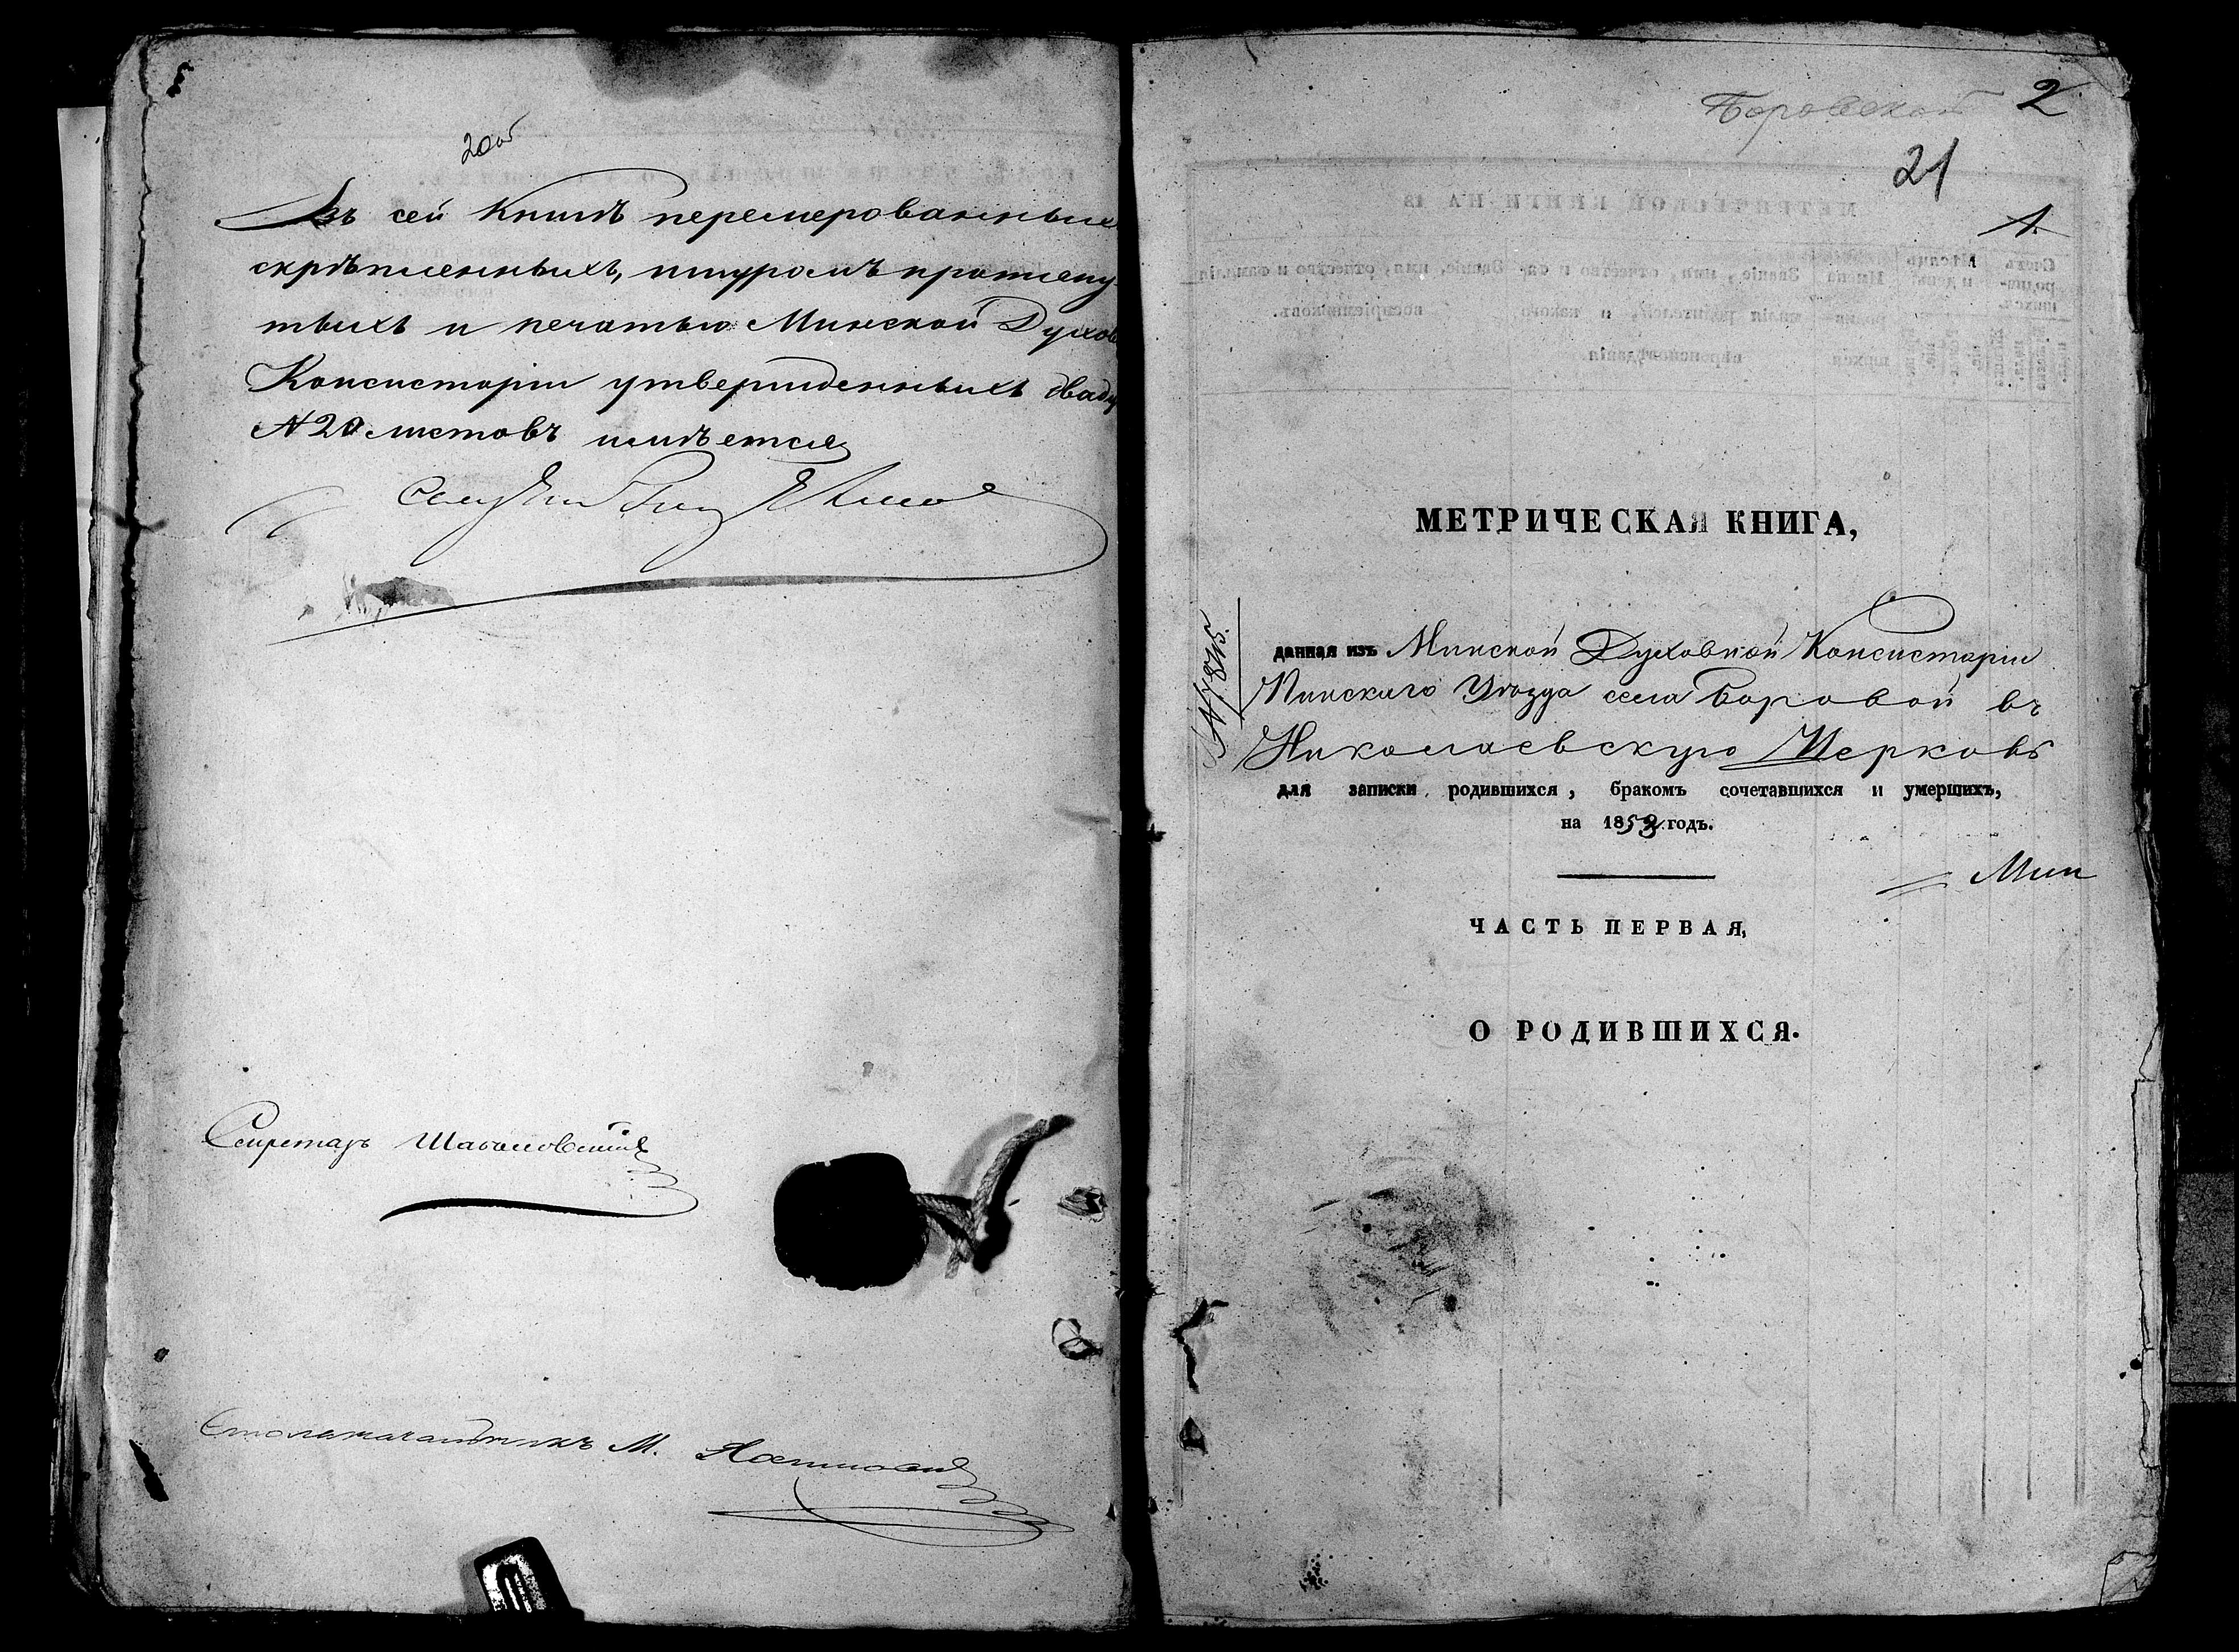 20об
Въ сей Книгѣ перемерованныхъ
скрѣпленныхъ, шнуромъ протяну-
тыхъ и печатью Минской Духов
Консисторіи утвержденныхъ двад
№ 20 листовъ имѣется
Секретарь
Столоначальникъ М.
Боровской 2
21
1.
МЕТРИЧЕСКАЯ КНИГА,
данная изъ Минской Духовной Консисторіи
Пинскаго Уѣзда села Боровой въ
Николаевскую Церковь
для записки родившихся, бракомъ сочетавшихся и умершихъ,
на 1853 годъ.
Мин
ЧАСТЬ ПЕРВАЯ,
О РОДИВШИХСЯ.